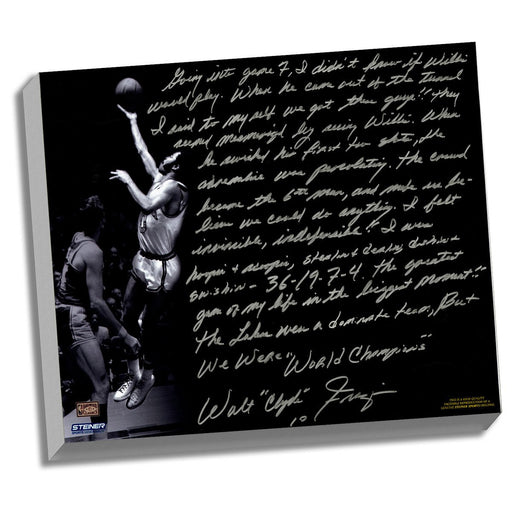 Going into game 7, I didn't know if Willis
would play. When he came out of the tunnel
I said to my self we got these guys!! They
seemed mesmerized by seeing Willis. When
he swished his first two shots, the
adrenaline was percolating. The crowd
became the 6th man, and made us be-
lieve we could do anything. I felt
invincible, indefensible!! I was
hoopin & scoopin, stealin & dealin, dunkin &
swishin - 36-19-7-4. The greatest
game of my life in the biggest moment!!
the Lakers were a dominate team, But
We Were "World Champions"
Walt "Clyde" Frazier
10
STEINER
THIS IS A HIGH QUALITY
FACSIMILE REPRODUCTION OF A
GENUINE STEINER SPORTS ORIGINAL